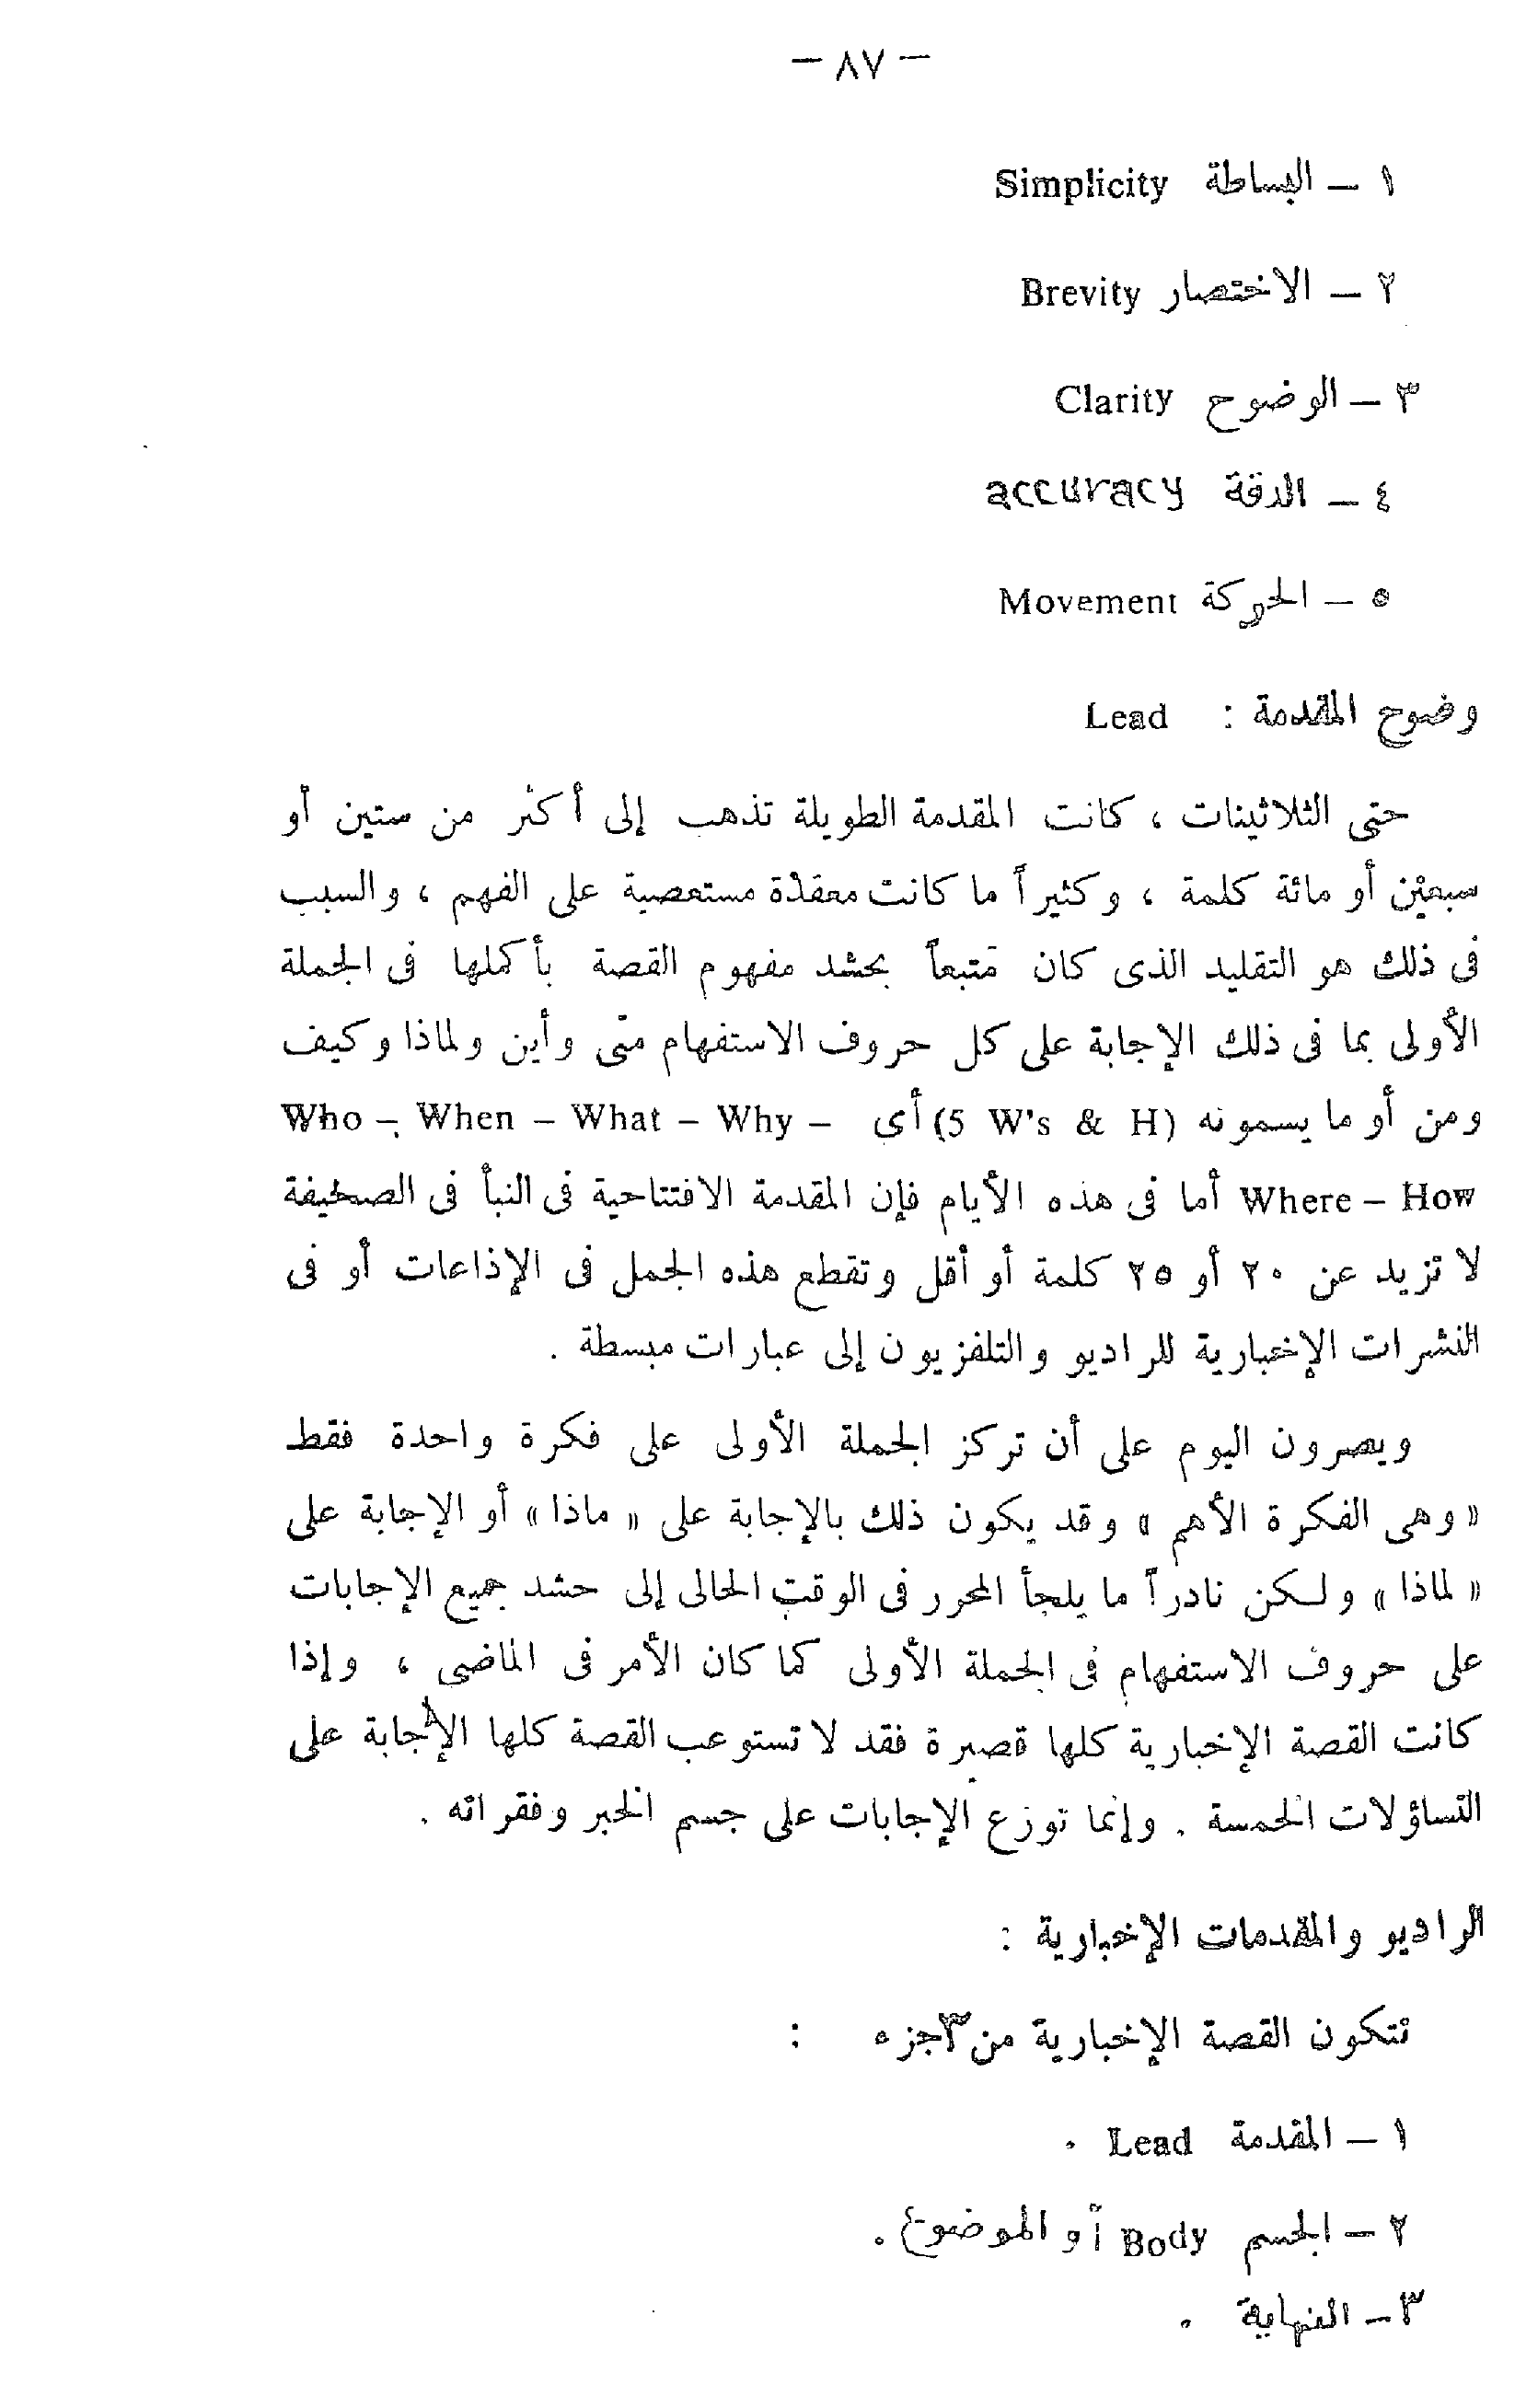 — ٨٧ —
١ — البساطة Simplicity
٢ — الاختصار Brevity
٣ — الوضوح Clarity
٤ — الدقة accuracy
٥ — الحركة Movement
وضوح المقدمة : Lead
حتى الثلاثينات ، كانت المقدمة الطويلة تذهب إلى أكثر من ستين أو
سبعين أو مائة كلمة ، وكثيراً ما كانت معقدة مستعصية على الفهم ، والسبب
فى ذلك هو التقليد الذى كان متبعاً بحشد مفهوم القصة بأكملها فى الجملة
الأولى بما فى ذلك الإجابة على كل حروف الاستفهام متى وأين ولماذا وكيف
ومن أو ما يسمونه (5 W's & H) أى Who – When – What – Why –
Where – How أما فى هذه الأيام فإن المقدمة الافتتاحية فى النبأ فى الصحيفة
لا تزيد عن ٢٠ أو ٢٥ كلمة أو أقل وتقطع هذه الجمل فى الإذاعات أو فى
النشرات الإخبارية للراديو والتلفزيون إلى عبارات مبسطة .
ويصرون اليوم على أن تركز الجملة الأولى على فكرة واحدة فقط
« وهى الفكرة الأهم » وقد يكون ذلك بالإجابة على « ماذا » أو الإجابة على
« لماذا » ولكن نادراً ما يلجأ المحرر فى الوقت الحالى إلى حشد جميع الإجابات
على حروف الاستفهام فى الجملة الأولى كما كان الأمر فى الماضى ، وإذا
كانت القصة الإخبارية كلها قصيرة فقد لا تستوعب القصة كلها الإجابة على
التساؤلات الخمسة . وإنما توزع الإجابات على جسم الخبر وفقراته .
الراديو والمقدمات الإخبارية :
تتكون القصة الإخبارية من ٣ أجزء :
١ — المقدمة Lead .
٢ — الجسم Body أو الموضوع .
٣ — النهاية .